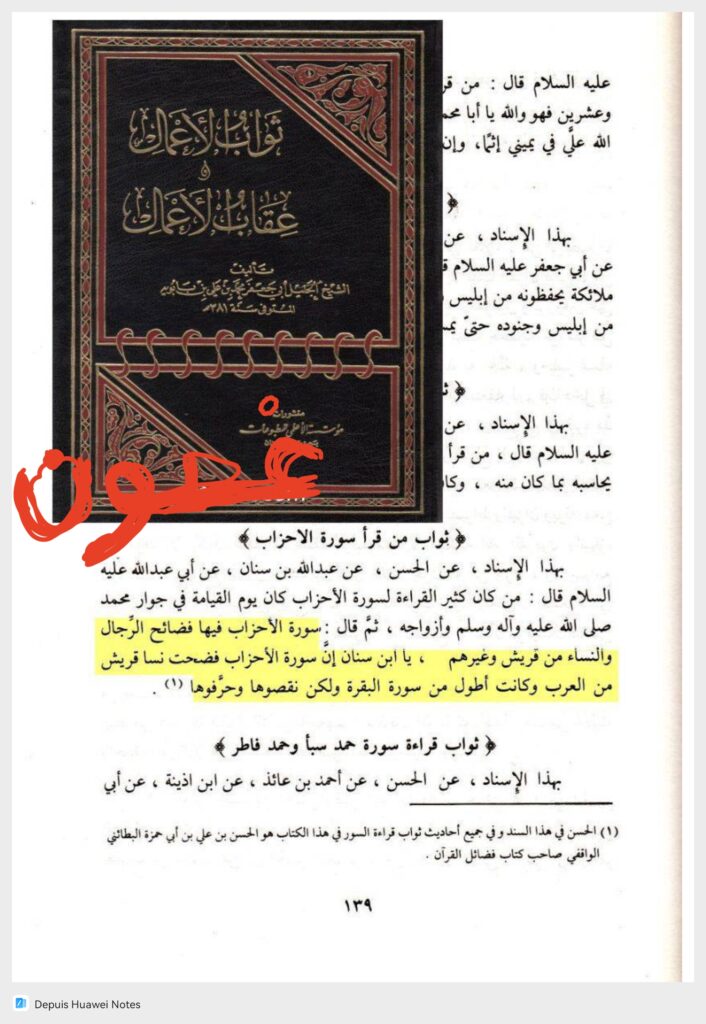 ثواب الأعمال
و
عقاب الأعمال
تأليف
الشيخ الجليل أبي جعفر محمد بن علي بن بابويه
المتوفى سنة ٣٨١هـ
منشورات
مؤسسة الأعلمي للمطبوعات
عليه السلام قال : من قر
وعشرين فهو والله يا أبا محم
الله عليَّ في يميني إثمًا، وإن
بهذا الإسناد ، عن
عن أبي جعفر عليه السلام ق
ملائكة يحفظونه من إبليس
من إبليس وجنوده حتىّ يم
بهذا الإسناد ، عن
عليه السلام قال ، من قرأ
يحاسبه بما كان منه ، وكان
﴿ ثواب من قرأ سورة الاحزاب ﴾
بهذا الإسناد ، عن الحسن ، عن عبدالله بن سنان ، عن أبي عبدالله عليه
السلام قال : من كان كثير القراءة لسورة الأحزاب كان يوم القيامة في جوار محمد
صلى الله عليه وآله وسلم وأزواجه ، ثمَّ قال : سورة الأحزاب فيها فضائح الرِّجال
والنساء من قريش وغيرهم ، يا ابن سنان إنَّ سورة الأحزاب فضحت نسا قريش
من العرب وكانت أطول من سورة البقرة ولكن نقصوها وحرَّفوها (١) .
﴿ ثواب قراءة سورة حمد سبأ وحمد فاطر ﴾
بهذا الإسناد ، عن الحسن ، عن أحمد بن عائذ ، عن ابن اذينة ، عن أبي
(١) الحسن في هذا السند و في جميع أحاديث ثواب قراءة السور في هذا الكتاب هو الحسن بن علي بن أبي حمزة البطائني
الواقفي صاحب كتاب فضائل القرآن .
١٣٩
Depuis Huawei Notes